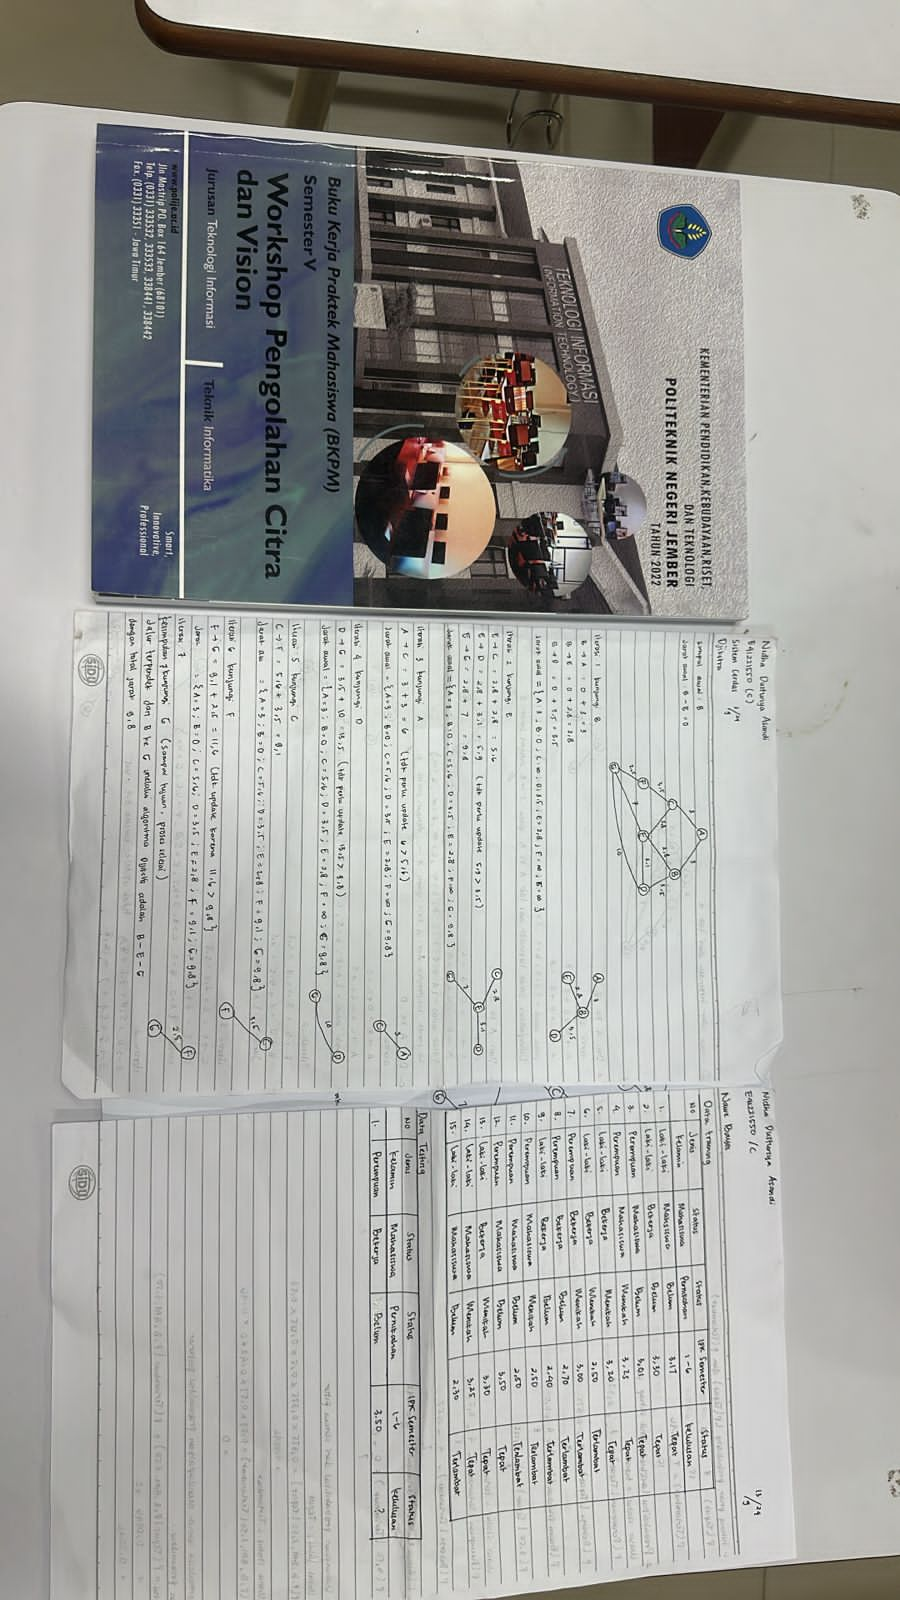 KEMENTERIAN PENDIDIKAN, KEBUDAYAAN, RISET,
DAN TEKNOLOGI
POLITEKNIK NEGERI JEMBER
TAHUN 2022
TEKNOLOGI INFORMASI
INFORMATION TECHNOLOGY
Buku Kerja Praktek Mahasiswa (BKPM)
Semester V
Workshop Pengolahan Citra
dan Vision
Jurusan Teknologi Informasi
Teknik Informatika
www.polije.ac.id
Jln Mastrip P.O. Box 164 Jember (68101)
Telp. (0331) 333532, 333533, 338441, 338442
Fax. (0331) 33351 - Jawa Timur
Smart,
Innovative,
Professional
Nidha Dusturiya Asandi
E41221550 (C)
Sistem Cerdas
Djikstra
simpul awal : B
Jarak awal : B - B = 0
Iterasi 1 kunjungi B
B → A = 0 + 3 = 3
B → E = 0 + 2,8 = 2,8
B → D = 0 + 3,5 = 3,5
Iterasi 2 kunjungi E
E → C = 2,8 + 2,8 = 5,6
E → D = 2,8 + 3,1 = 5,9 (tdk perlu update 5,9 > 3,5)
E → G = 2,8 + 7 = 9,8
Iterasi 3 kunjungi A
A → C = 3 + 3 = 6 (tdk perlu update 6 > 5,6)
Jarak awal = {A=3; B=0; C=5,6; D=3,5; E=2,8; F=∞; G=9,8}
Iterasi 4 kunjungi D
D → G = 3,5 + 10 = 13,5 (tdk perlu update 13,5 > 9,8)
Jarak awal = {A=3; B=0; C=5,6; D=3,5; E=2,8; F=∞; G=9,8}
Iterasi 5 kunjungi C
C → F = 5,6 + 3,5 = 9,1
Jarak aw = {A=3; B=0; C=5,6; D=3,5; E=2,8; F=9,1; G=9,8}
Iterasi 6 kunjungi F
F → G = 9,1 + 2,5 = 11,6 (tdk update karena 11,6 > 9,8)
Jarak = {A=3; B=0; C=5,6; D=3,5; E=2,8; F=9,1; G=9,8}
Iterasi 7 kunjungi G (sampai tujuan, proses selesai)
Jalur terpendek dari B ke G melalui algoritma Djikstra adalah B - E - G
dengan total jarak 9.8
SIDU
Nidha Dusturiya Asandi
E41221550 / C
Naive Bayes
Data training
No Jenis Kelamin Status Mahasiswa Status Pernikahan IPK Semester 1-6 Status Kelulusan
1. Laki-laki Mahasiswa Belum 3,17 Tepat
2. Laki-laki Bekerja Belum 3,30 Tepat
3. Perempuan Mahasiswa Belum 3,01 Tepat
4. Perempuan Mahasiswa Menikah 3,25 Tepat
5. Laki-laki Bekerja Menikah 3,20 Tepat
6. Laki-laki Bekerja Menikah 2,50 Terlambat
7. Perempuan Bekerja Menikah 3,00 Terlambat
8. Perempuan Bekerja Belum 2,70 Terlambat
9. Laki-laki Bekerja Belum 2,40 Terlambat
10. Perempuan Mahasiswa Menikah 2,50 Terlambat
11. Perempuan Mahasiswa Belum 2,50 Terlambat
12. Perempuan Mahasiswa Belum 3,50 Tepat
13. Laki-laki Bekerja Menikah 3,30 Tepat
14. Laki-laki Mahasiswa Menikah 3,25 Tepat
15. Laki-laki Mahasiswa Belum 2,30 Terlambat
Data Testing
No Jenis Kelamin Status Mahasiswa Status Pernikahan IPK Semester 1-6 Status Kelulusan
1. Perempuan Bekerja Belum 3.50 ?
SIDU